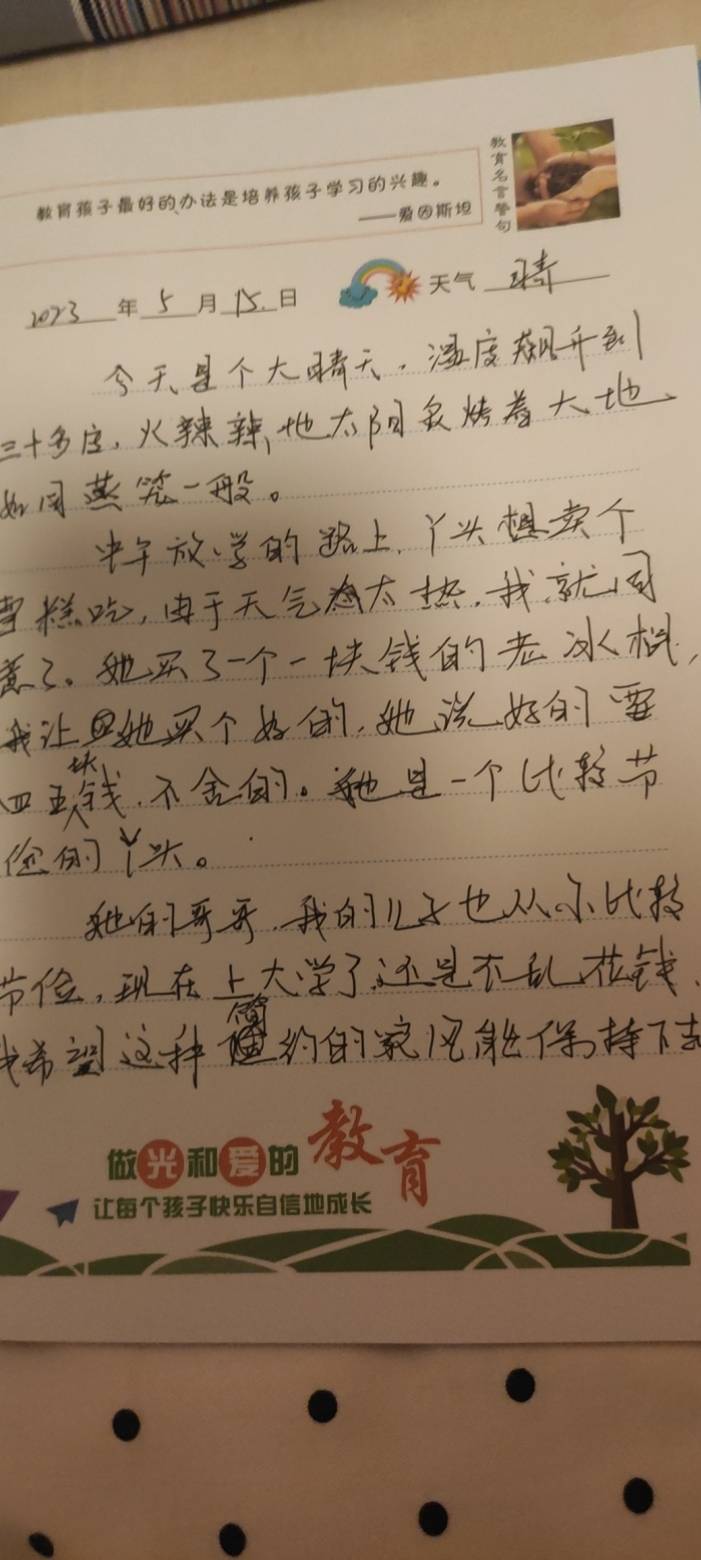 教育孩子最好的办法是培养孩子学习的兴趣。
——爱因斯坦
教育名言警句
2023年5月15.日 天气 晴
今天是个大晴天,温度飙升到
三十多度,火辣辣地太阳炙烤着大地
如同蒸笼一般。
中午放学的路上,丫头想卖个
雪糕吃,由于天气太热,我就同
意了。她买了一个一块钱的老冰棍,
我让她买个好的,她说好的要
四五块钱,不舍的。她是一个比较节
俭的丫头。
她的哥哥,我的儿子也从小比较
节俭,现在上大学了还是不乱花钱,
我希望这种简约的家风能保持下去
做光和爱的教育
让每个孩子快乐自信地成长